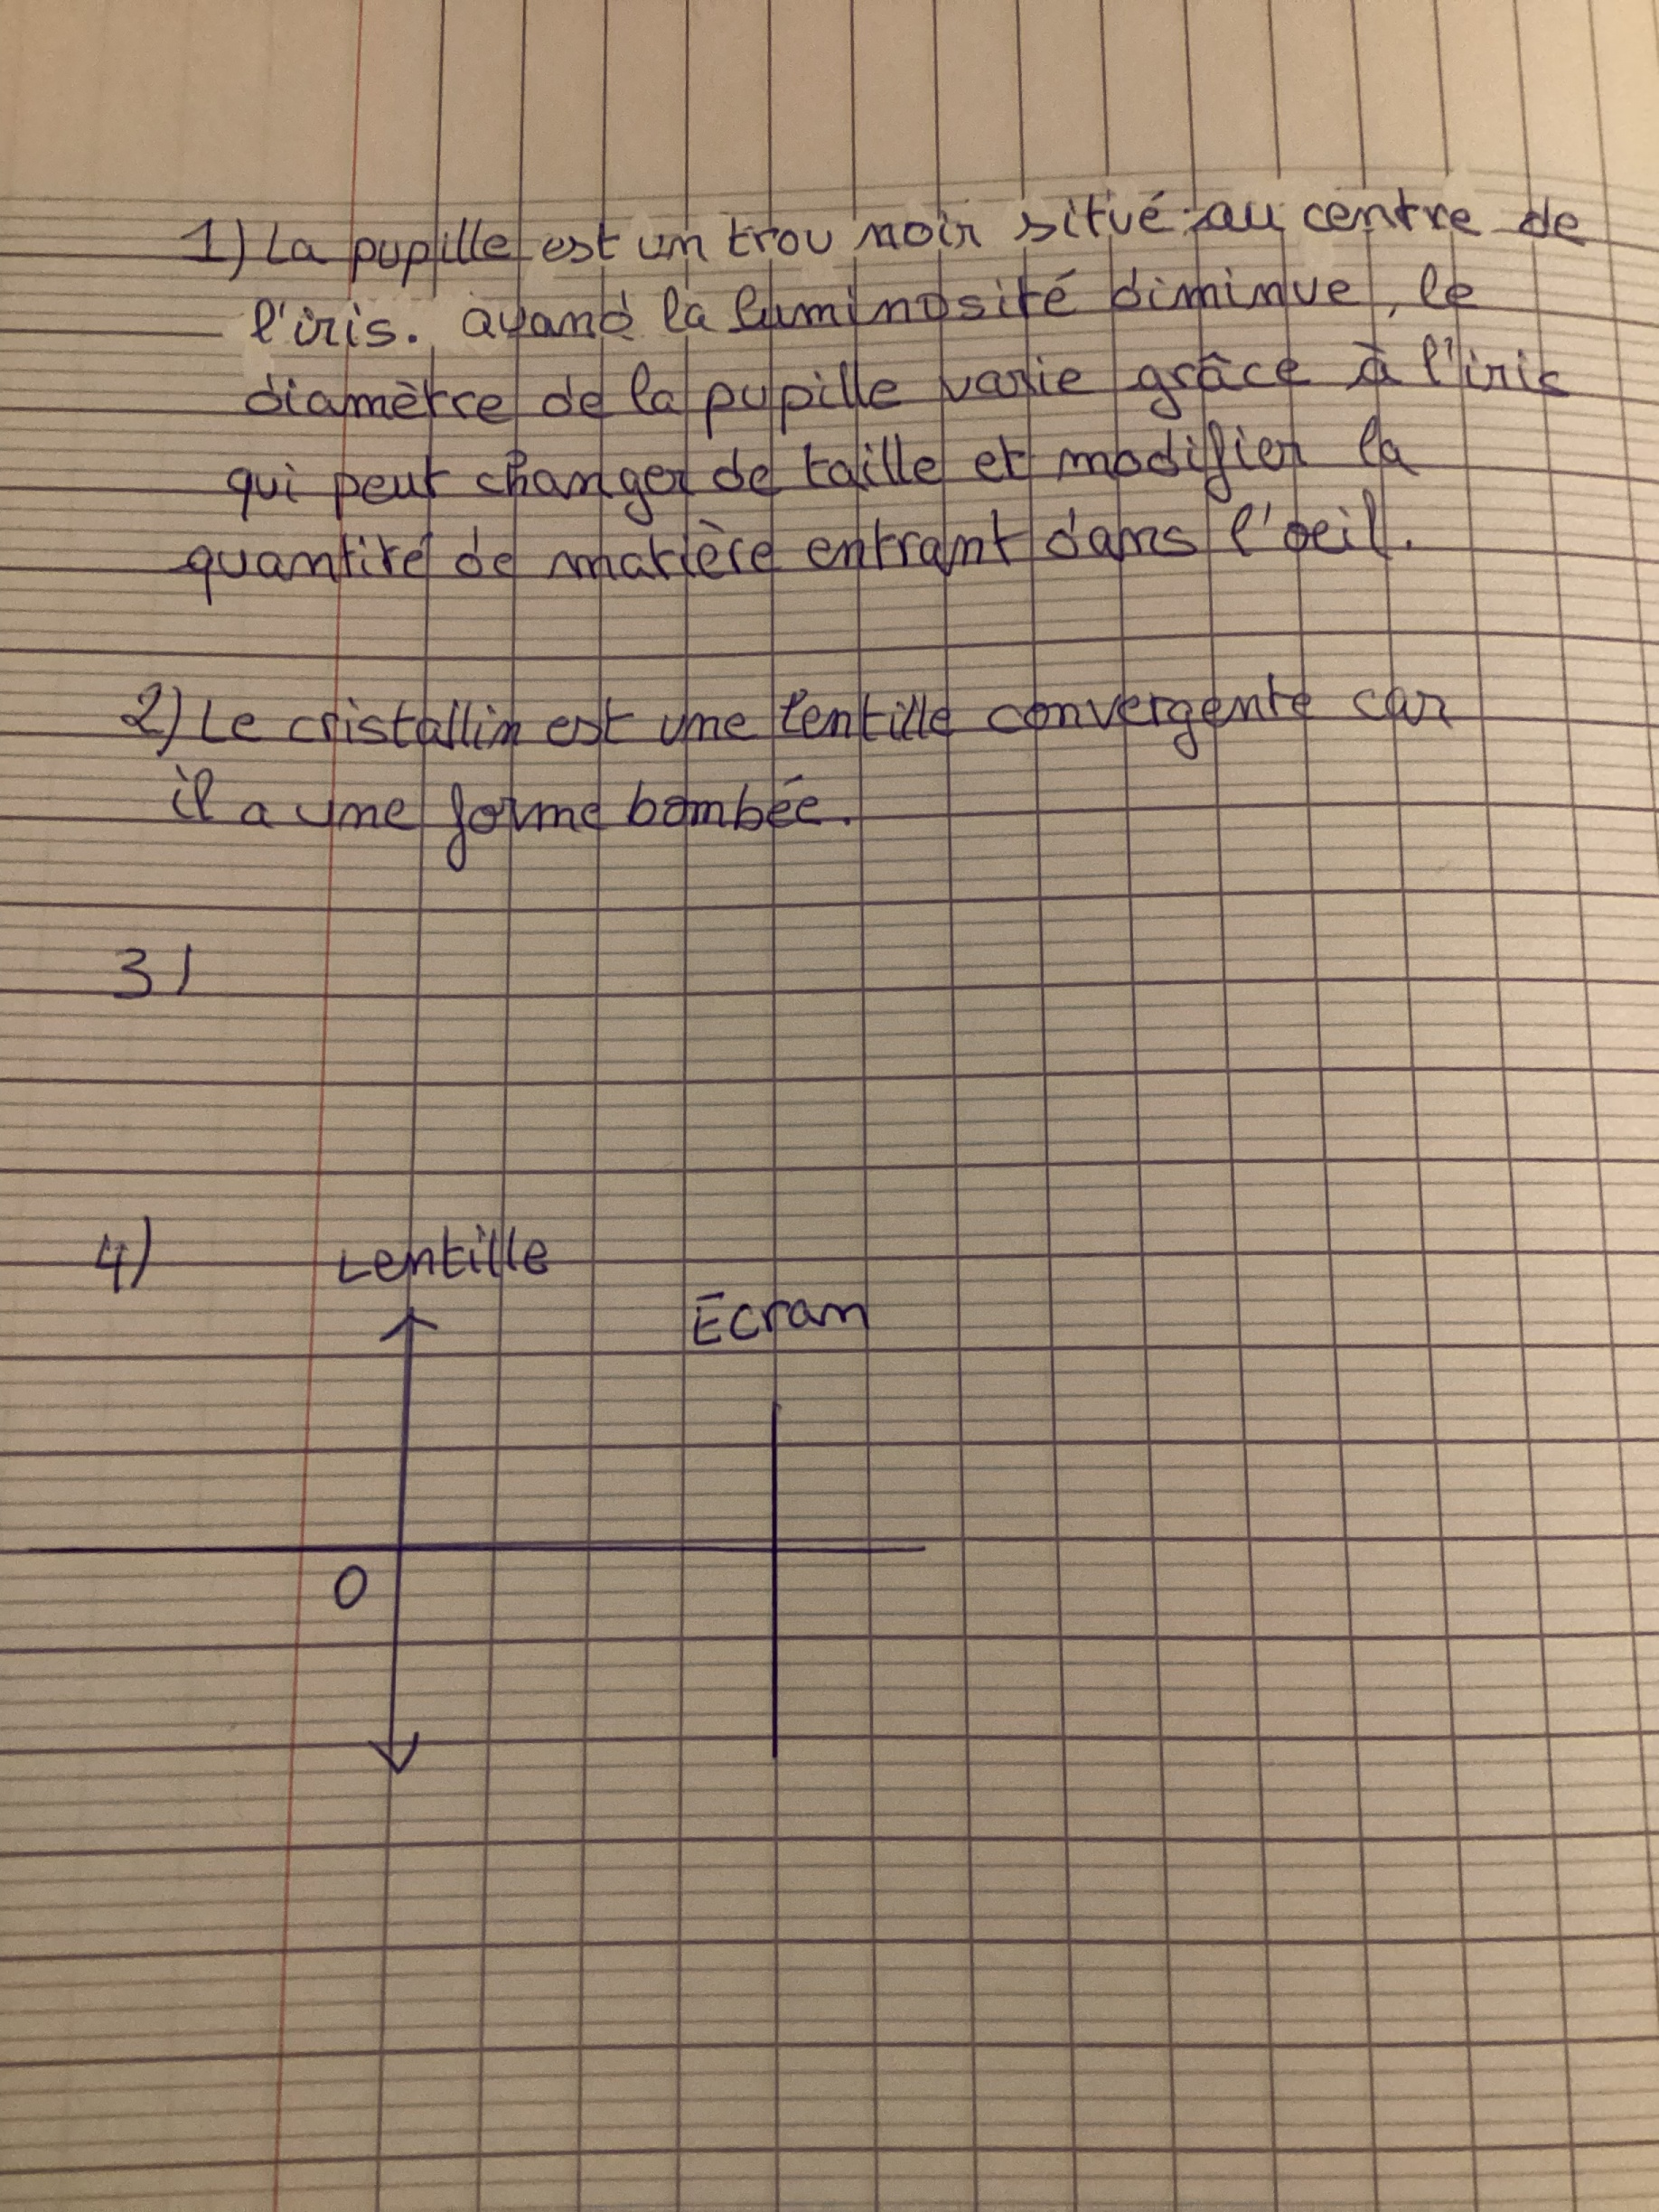 1) La pupille est un trou noir situé au centre de
l'iris. Quand la luminosité diminue, le
diamètre de la pupille varie grâce à l'iris
qui peut changer de taille et modifier la
quantité de matière entrant dans l'oeil.
2) Le cristallin est une lentille convergente car
il a une forme bombée.
3)
4) Lentille
Ecran
O